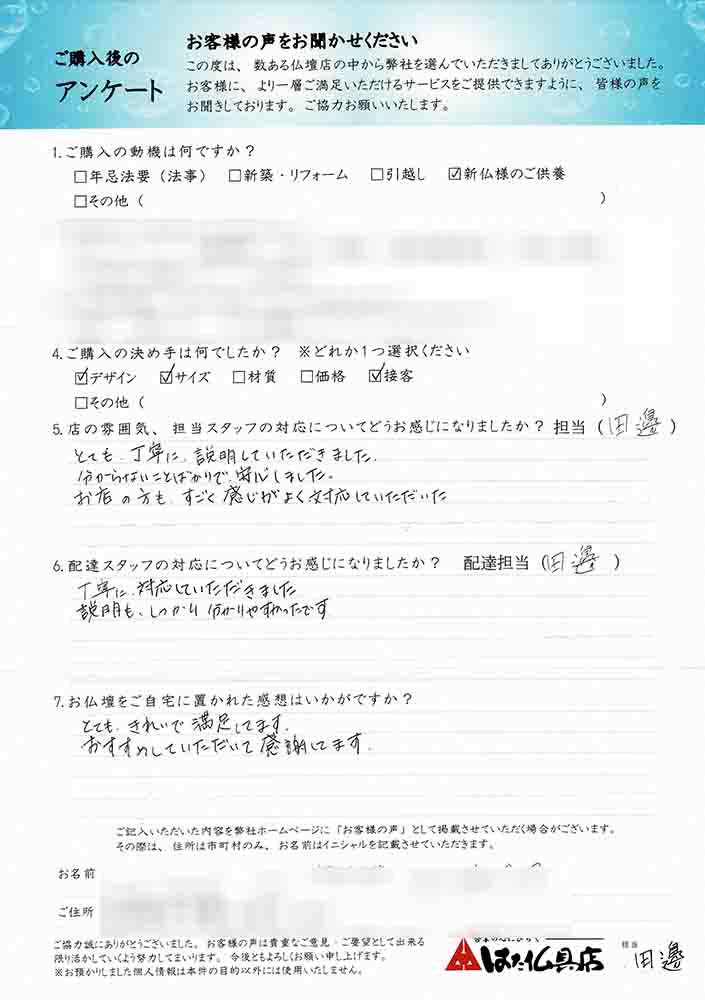 ご購入後の
アンケート
お客様の声をお聞かせください
この度は、数ある仏壇店の中から弊社を選んでいただきましてありがとうございました。
お客様に、より一層ご満足いただけるサービスをご提供できますように、皆様の声を
お聞きしております。ご協力お願いいたします。
1.ご購入の動機は何ですか？
□年忌法要（法事） □新築・リフォーム □引越し ☑新仏様のご供養
□その他（ ）
4.ご購入の決め手は何でしたか？ ※どれか1つ選択ください
☑デザイン ☑サイズ □材質 □価格 ☑接客
□その他（ ）
5.店の雰囲気、担当スタッフの対応についてどうお感じになりましたか？ 担当（田邊）
とても、丁寧に、説明していただきました。
分からないことばかりで、安心しました。
お店の方も、すごく感じがよく対応していただいた
6.配達スタッフの対応についてどうお感じになりましたか？ 配達担当（田邊）
丁寧に、対応していただきました
説明も、しっかり分かりやすかったです
7.お仏壇をご自宅に置かれた感想はいかがですか？
とても、きれいで満足してます。
おすすめしていただいて感謝してます。
ご記入いただいた内容を弊社ホームページに「お客様の声」として掲載させていただく場合がございます。
その際は、住所は市町村のみ、お名前はイニシャルを記載させていただきます。
お名前
ご住所
ご協力誠にありがとうございました。お客様の声は貴重なご意見・ご要望として出来る
限り活かしていくよう努力してまいります。今後ともよろしくお願い申し上げます。
※お預かりしました個人情報は本件の目的以外には使用いたしません。
はた仏具店
担当 田邊